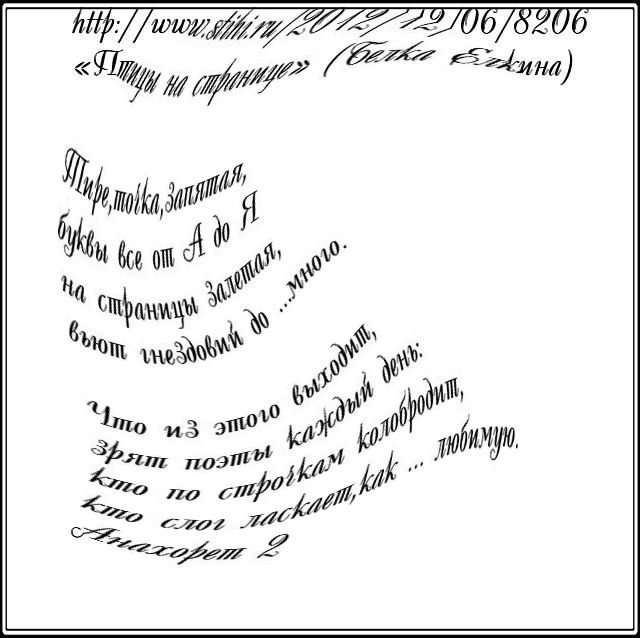 http://www.stihi.ru/2012/12/06/8206
«Птицы на странице» (Белка Елкина)
Тире,точка,запятая,
буквы все от А до Я
на страницы залетая,
вьют гнездовий до ...много.
Что из этого выходит,
зрят поэты каждый день:
кто по строчкам колобродит,
кто слог ласкает,как ... любимую.
Анахорет 2